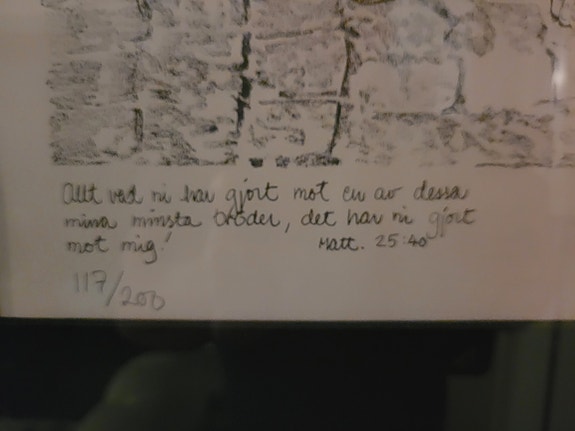 Allt vad ni har gjort mot en av dessa
mina minsta bröder, det har ni gjort
mot mig!
Matt. 25:40
117/200